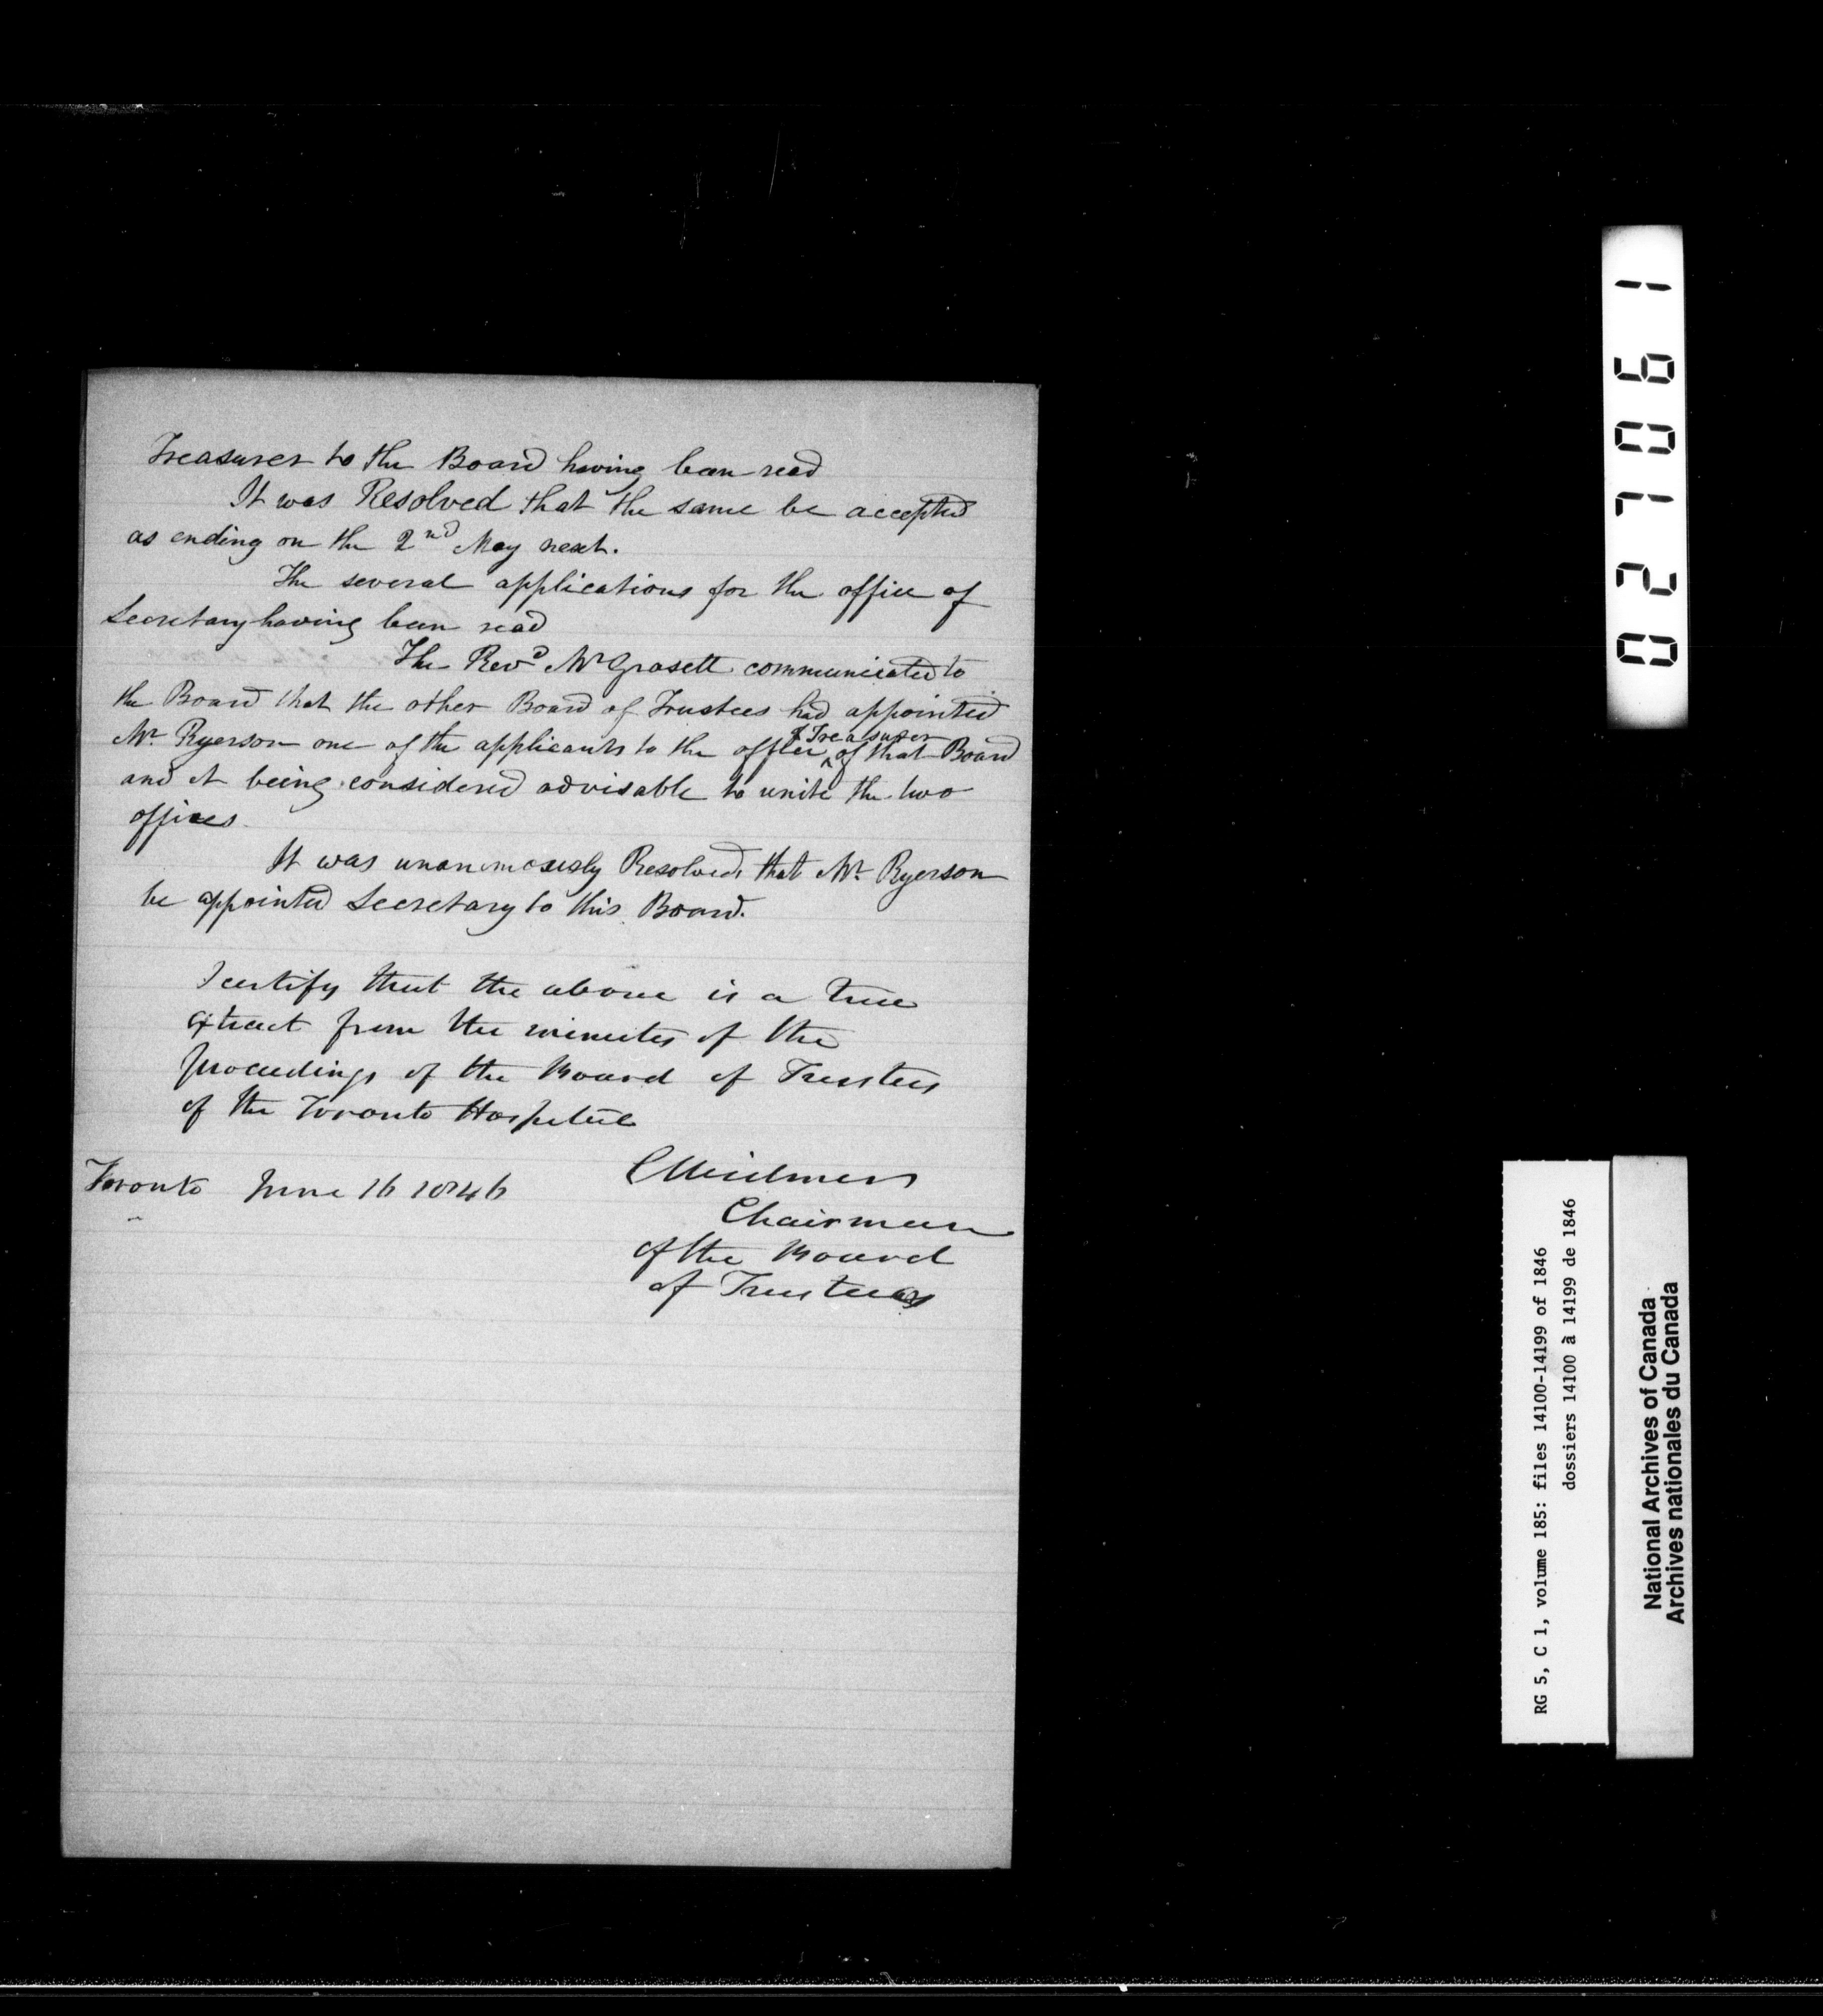 Treasurer to the Board having been read
It was Resolved that the same be accepted
as ending on the 2nd May next.
The several applications for the office of
Secretary having been read
The Revd Mr Grasett communicated to
the Board that the other Board of Trustees had appointed
Mr Ryerson one of the applicants to the office of Treasurer of that Board
and it being considered advisable to unite the two
offices
It was unanimously Resolved that Mr Ryerson
be appointed Secretary to this Board.
I certify that the above is a true
extract from the minutes of the
proceedings of the Board of Trustees
of the Toronto Hospital
Toronto June 16 1846
C Widmer
Chairman
of the Board
of Trustees
027061
RG 5, C 1, volume 185: files 14100-14199 of 1846
dossiers 14100 à 14199 de 1846
National Archives of Canada
Archives nationales du Canada